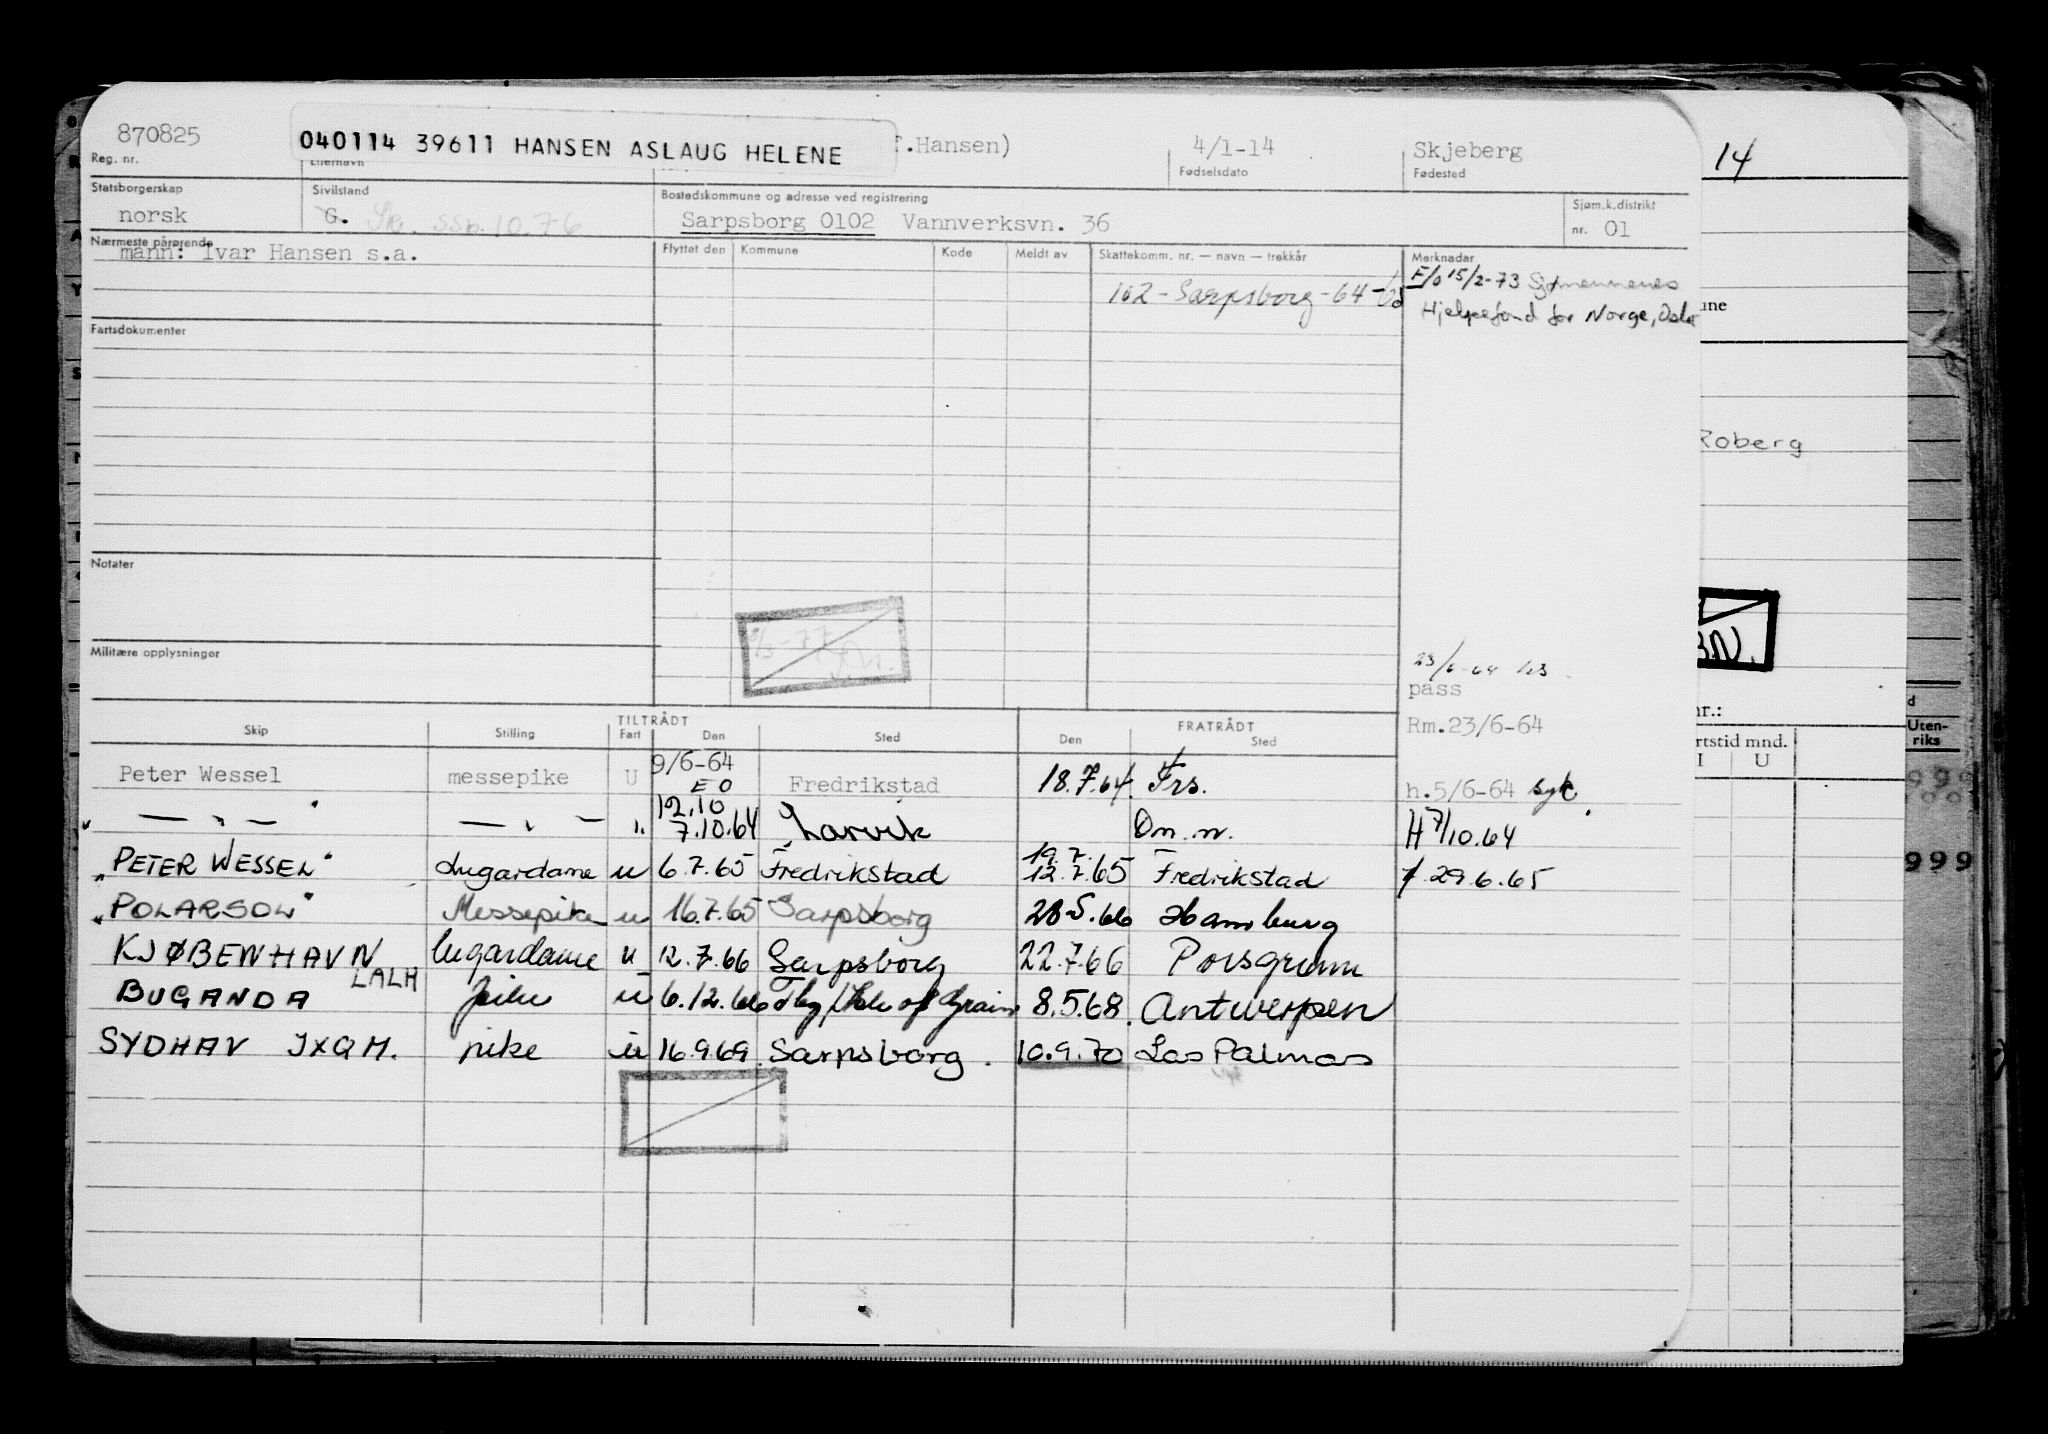 870825 040114 39611 HANSEN ASLAUG HELENE .Hansen) 4/1-14 Skjeberg
Reg. nr. Etternavn Fødselsdato Fødested
Statsborgerskap Sivilstand Bostedskommune og adresse ved registrering Sjøm.k.distrikt
norsk G. 10.76 Sarpsborg 0102 Vannverksvn. 36 nr. 01
Nærmeste pårørende Flyttet den Kommune Kode Meldt av Skattekomm. nr. — navn — trekkår Merknader
mann: Ivar Hansen s.a.
102 - Sarpsborg - 64 - F/o 15/2-73 Sjømennenes
Hjelpefond for Norge, Oslo
Fartsdokumenter
Notater
Militære opplysninger
23/6-64
pass
Rm.23/6-64
TILTRÅDT FRATRÅDT
Skip Stilling Fart Den Sted Den Sted
Peter Wessel messepike U 9/6-64 EO Fredrikstad 18.7.64. Frs. h.5/6-64 syk
" — " — " — " — " 12.10 7.10.64 Larvik Om. m. H 7/10.64
"PETER WESSEL" Lugardame u 6.7.65 Fredrikstad 19.7. 12.7.65 Fredrikstad 29.6.65
"POLARSOL" Messepike u 16.7.65 Sarpsborg 28.5.66 Hamburg
KJØBENHAVN lugardame u 12.7.66 Sarpsborg 22.7.66 Porsgrunn
BUGANDA LALH pike u 6.12.66 Fbg/Isle of Grain 8.5.68. Antwerpen
SYDHAV JXQM. pike u 16.9.69. Sarpsborg. 10.9.70 Las Palmas
14
Roberg
nr.:
rtstid mnd.
I U
d
Uten-
riks
999
999